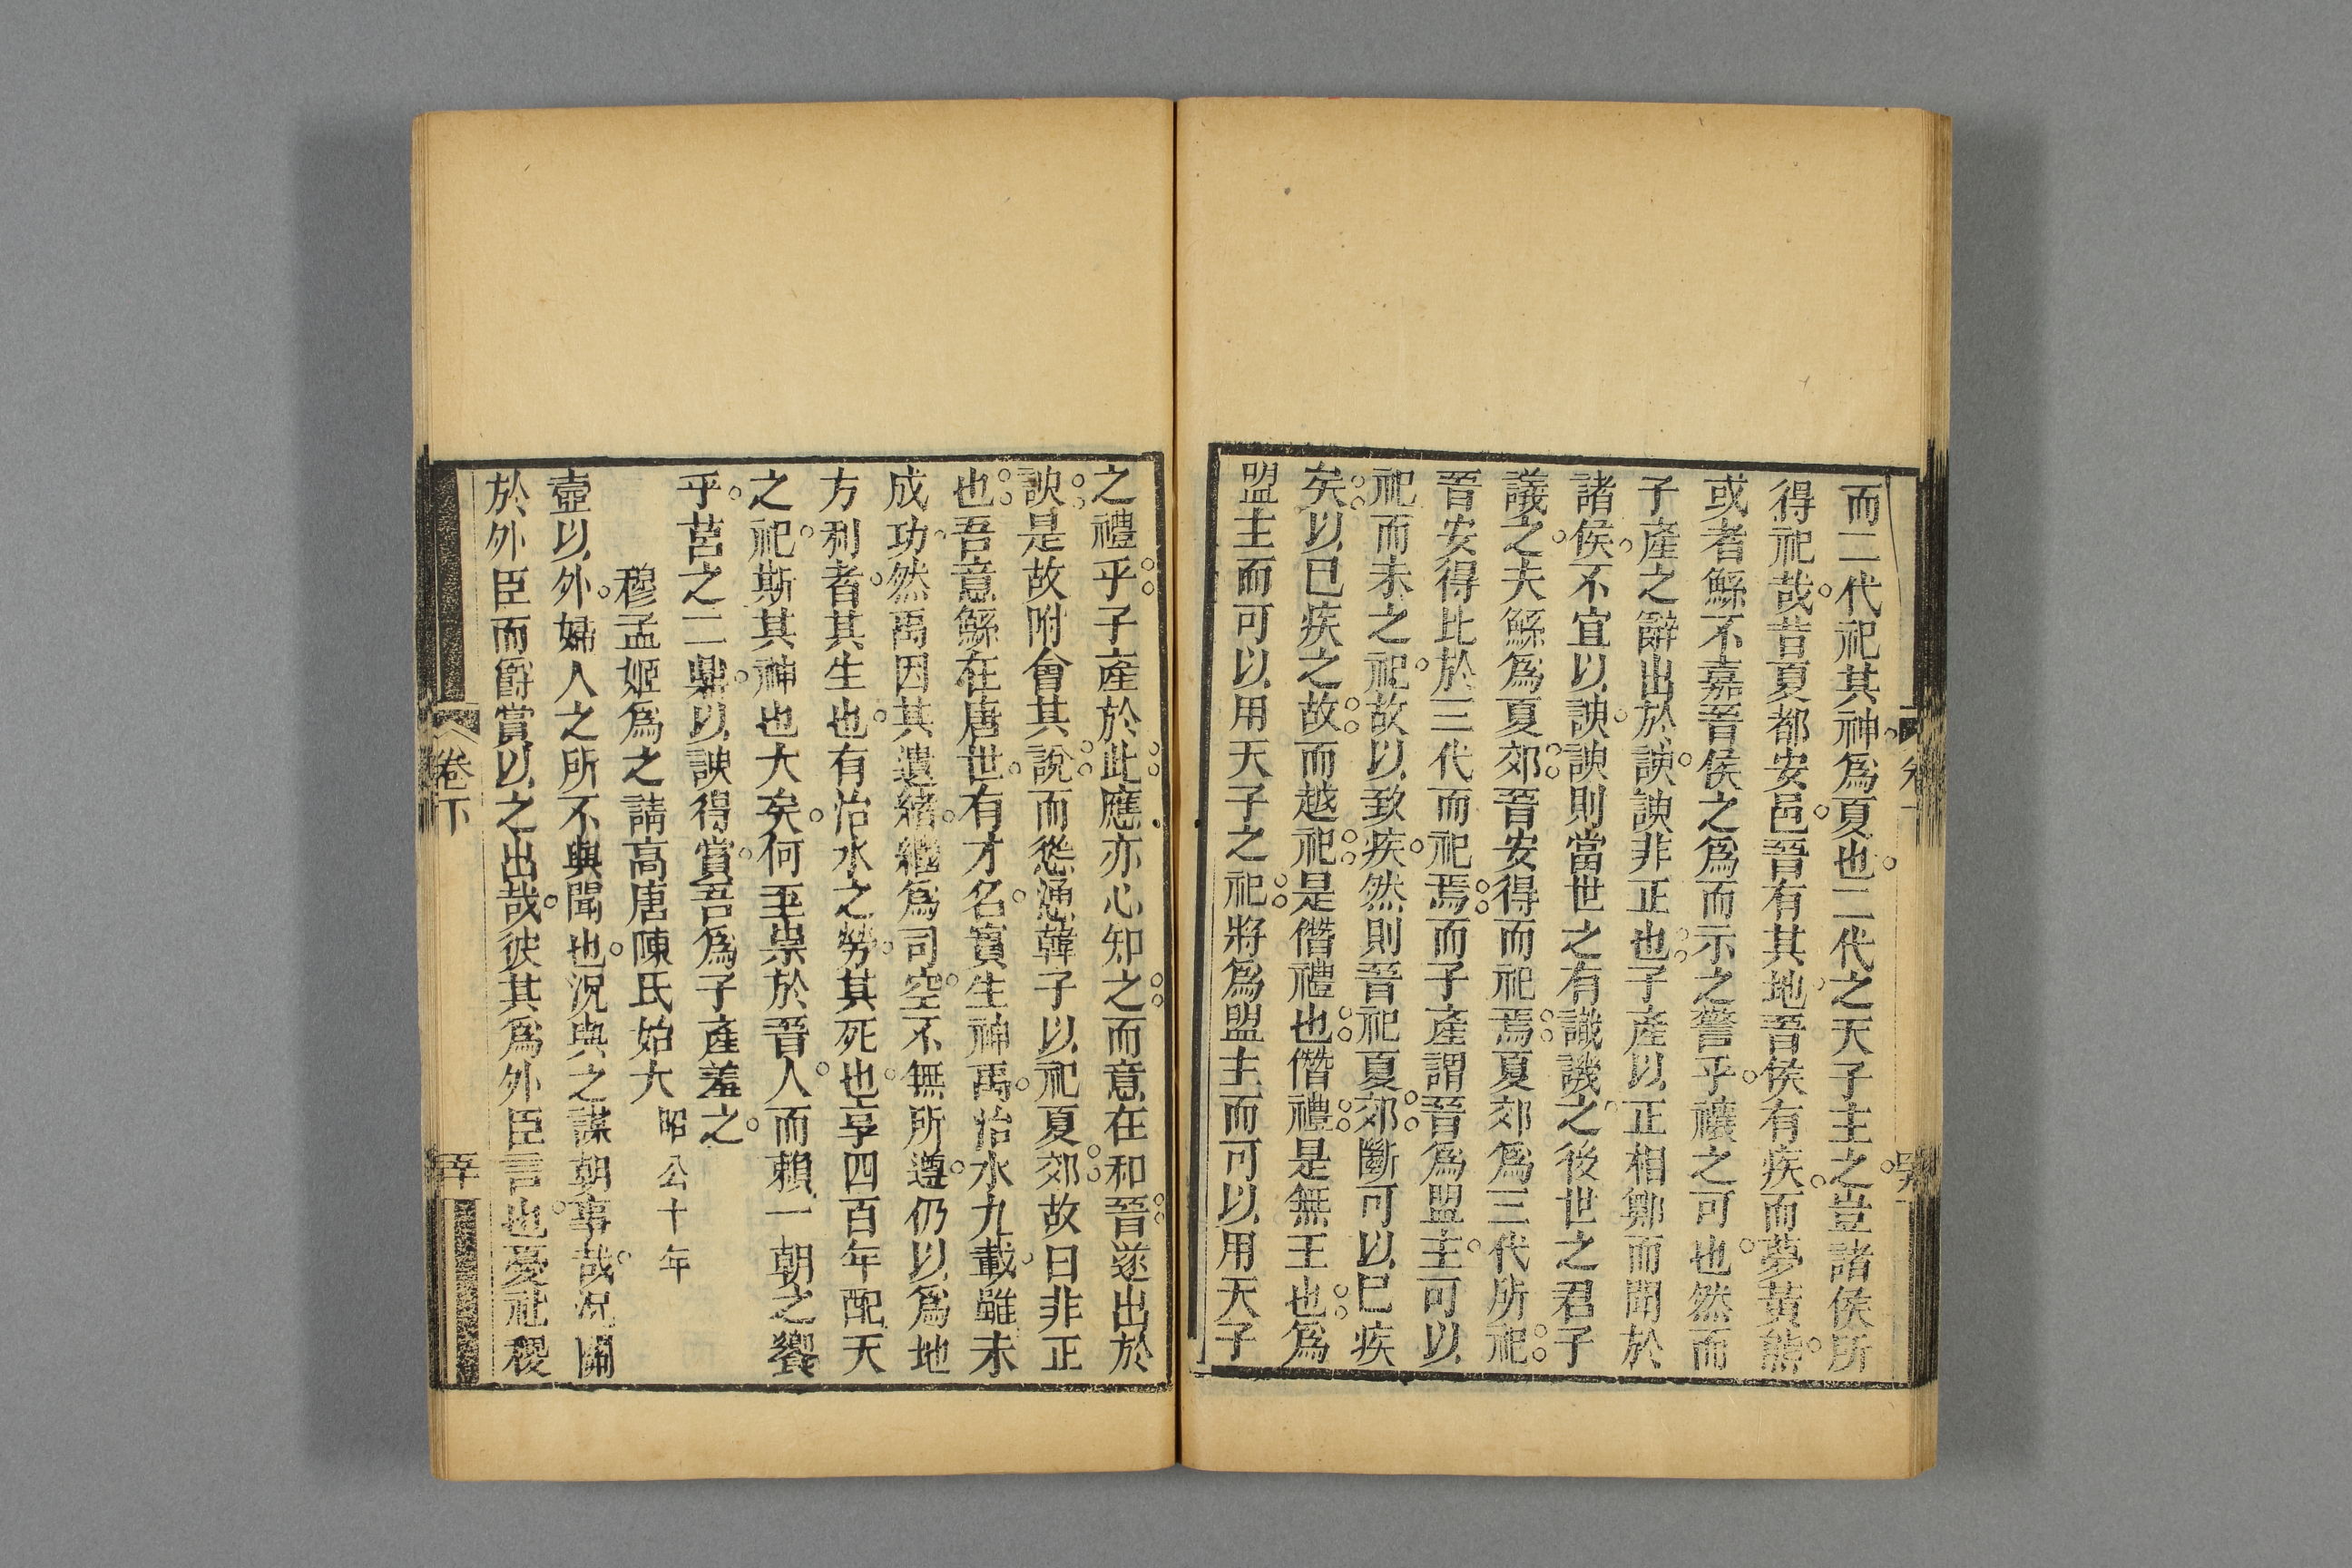 而二代祀其神爲夏也二代之天子主之豈諸侯所
得祀哉昔夏都安邑晉有其地晉侯有疾而夢黃熊
或者鯀不嘉晉侯之爲而示之警乎禳之可也然而
子產之辭出於諛諛非正也子產以正相鄭而聞於
諸侯不宜以諛諛則當世之有識譏之後世之君子
議之夫鯀爲夏郊晉安得而祀焉夏郊爲三代所祀
晉安得比於三代而祀焉而子產謂晉爲盟主可以
祀而未之祀故以致疾然則晉祀夏郊斷可以已疾
矣以已疾之故而越祀是僭禮也僭禮是無王也爲
盟主而可以用天子之祀將爲盟主而可以用天子
之禮乎子產於此應亦心知之而意在和晉遂出於
諛是故附會其說而慫慂韓子以祀夏郊故曰非正
也吾意鯀在唐世有才名實生神禹治水九載雖未
成功然禹因其遺緒繼爲司空不無所遵仍以爲地
方利者其生也有治水之勞其死也享四百年配天
之祀斯其神也大矣何至祟於晉人而賴一朝之饗
乎莒之二鼎以諛得賞吾爲子產羞之
穆孟姬爲之請高唐陳氏始大 昭公十年
壼以外婦人之所不與聞也況與之謀朝事哉況關
於外臣而爵賞以之出哉彼其爲外臣言也憂社稷
卷下